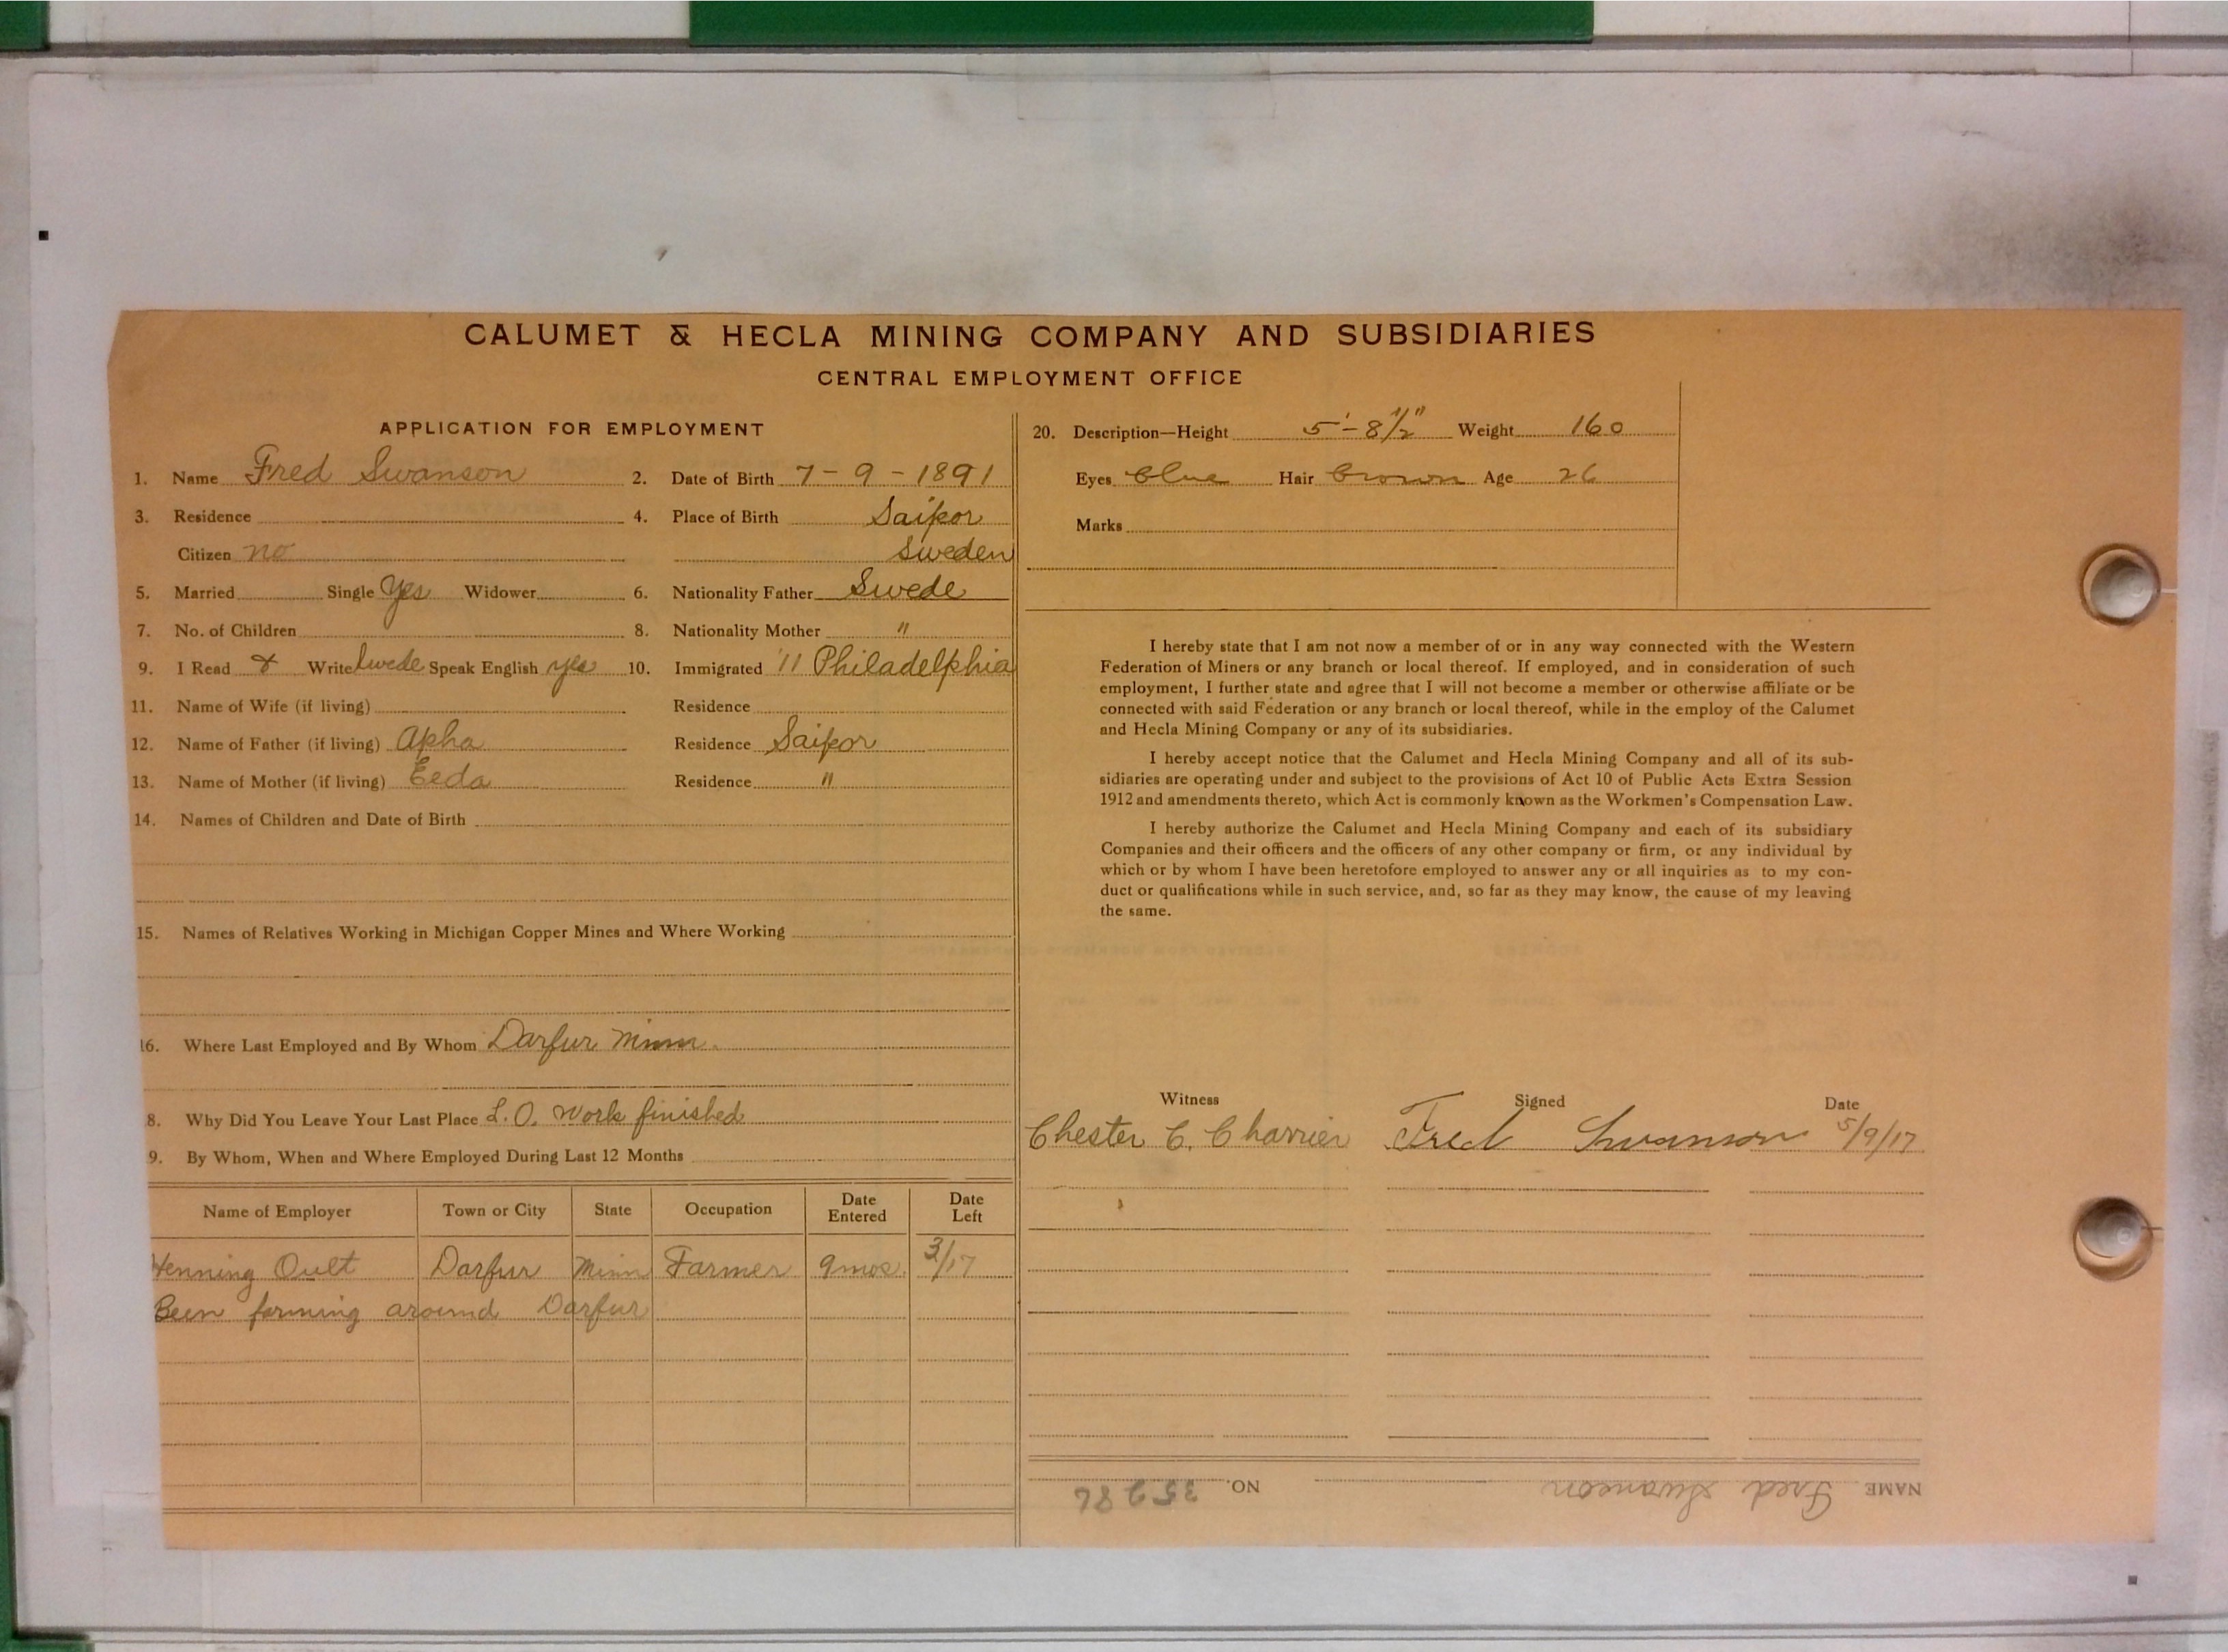 CALUMET & HECLA MINING COMPANY AND SUBSIDIARIES
CENTRAL EMPLOYMENT OFFICE
APPLICATION FOR EMPLOYMENT
1. Name Fred Swanson 2. Date of Birth 7-9-1891
3. Residence 4. Place of Birth Saifor
Citizen no Sweden
5. Married Single Yes Widower 6. Nationality Father Swede
7. No. of Children 8. Nationality Mother "
9. I Read & Write Swede Speak English yes 10. Immigrated '11 Philadelphia
11. Name of Wife (if living) Residence
12. Name of Father (if living) Apha Residence Saifor
13. Name of Mother (if living) Eeda Residence "
14. Names of Children and Date of Birth
15. Names of Relatives Working in Michigan Copper Mines and Where Working
16. Where Last Employed and By Whom Darfur Minn.
8. Why Did You Leave Your Last Place L.O. Work finished
9. By Whom, When and Where Employed During Last 12 Months
Name of Employer Town or City State Occupation Date Entered Date Left
Henning Oult Darfur Minn Farmer 9 mos. 3/17
Been farming around Darfur
20. Description—Height 5'-8 1/2" Weight 160
Eyes blue Hair brown Age 26
Marks
I hereby state that I am not now a member of or in any way connected with the Western
Federation of Miners or any branch or local thereof. If employed, and in consideration of such
employment, I further state and agree that I will not become a member or otherwise affiliate or be
connected with said Federation or any branch or local thereof, while in the employ of the Calumet
and Hecla Mining Company or any of its subsidiaries.
I hereby accept notice that the Calumet and Hecla Mining Company and all of its sub-
sidiaries are operating under and subject to the provisions of Act 10 of Public Acts Extra Session
1912 and amendments thereto, which Act is commonly known as the Workmen's Compensation Law.
I hereby authorize the Calumet and Hecla Mining Company and each of its subsidiary
Companies and their officers and the officers of any other company or firm, or any individual by
which or by whom I have been heretofore employed to answer any or all inquiries as to my con-
duct or qualifications while in such service, and, so far as they may know, the cause of my leaving
the same.
Witness Signed Date
Chester C. Charrier Fred Swanson 5/9/17
NAME Fred Swanson NO. 35286